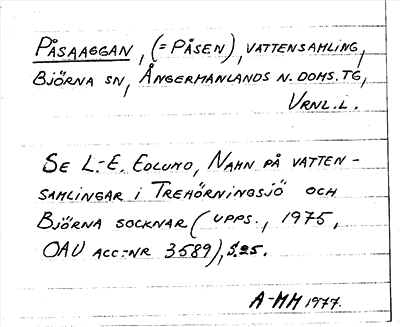 PÅSAAGGAN, (= PÅSEN), VATTENSAMLING,
BJÖRNA SN, ÅNGERMANLANDS N. DOMS. TG,
VRNL.L.
SE L.-E. EDLUND, NAMN PÅ VATTEN-
SAMLINGAR I TREHÖRNINGSJÖ OCH
BJÖRNA SOCKNAR (UPPS., 1975,
OAU ACC:NR 3589), S.25.
A-MH 1977.